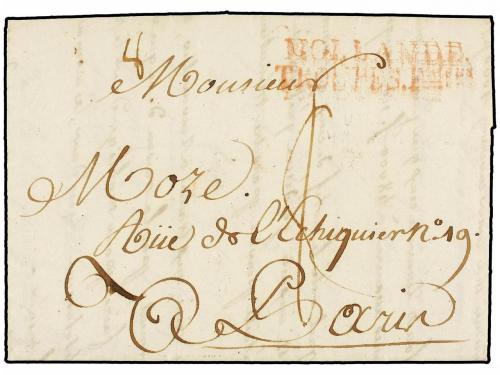 HOLLANDE.
TROUPES. F
8
Monsieur
Moze.
Rüe de l'Echiquier N.º 19.
A Paris